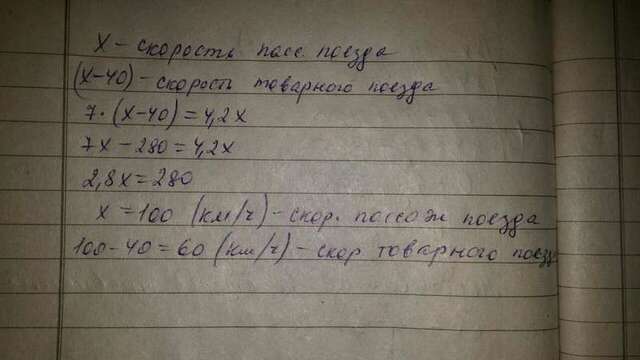 х – скорость пасс. поезда
(х-40) – скорость товарного поезда
7·(х-40)=4,2х
7х-280=4,2х
2,8х=280
х=100 (км/ч) – скор. пассаж поезда
100-40=60 (км/ч) – скор товарного поезд